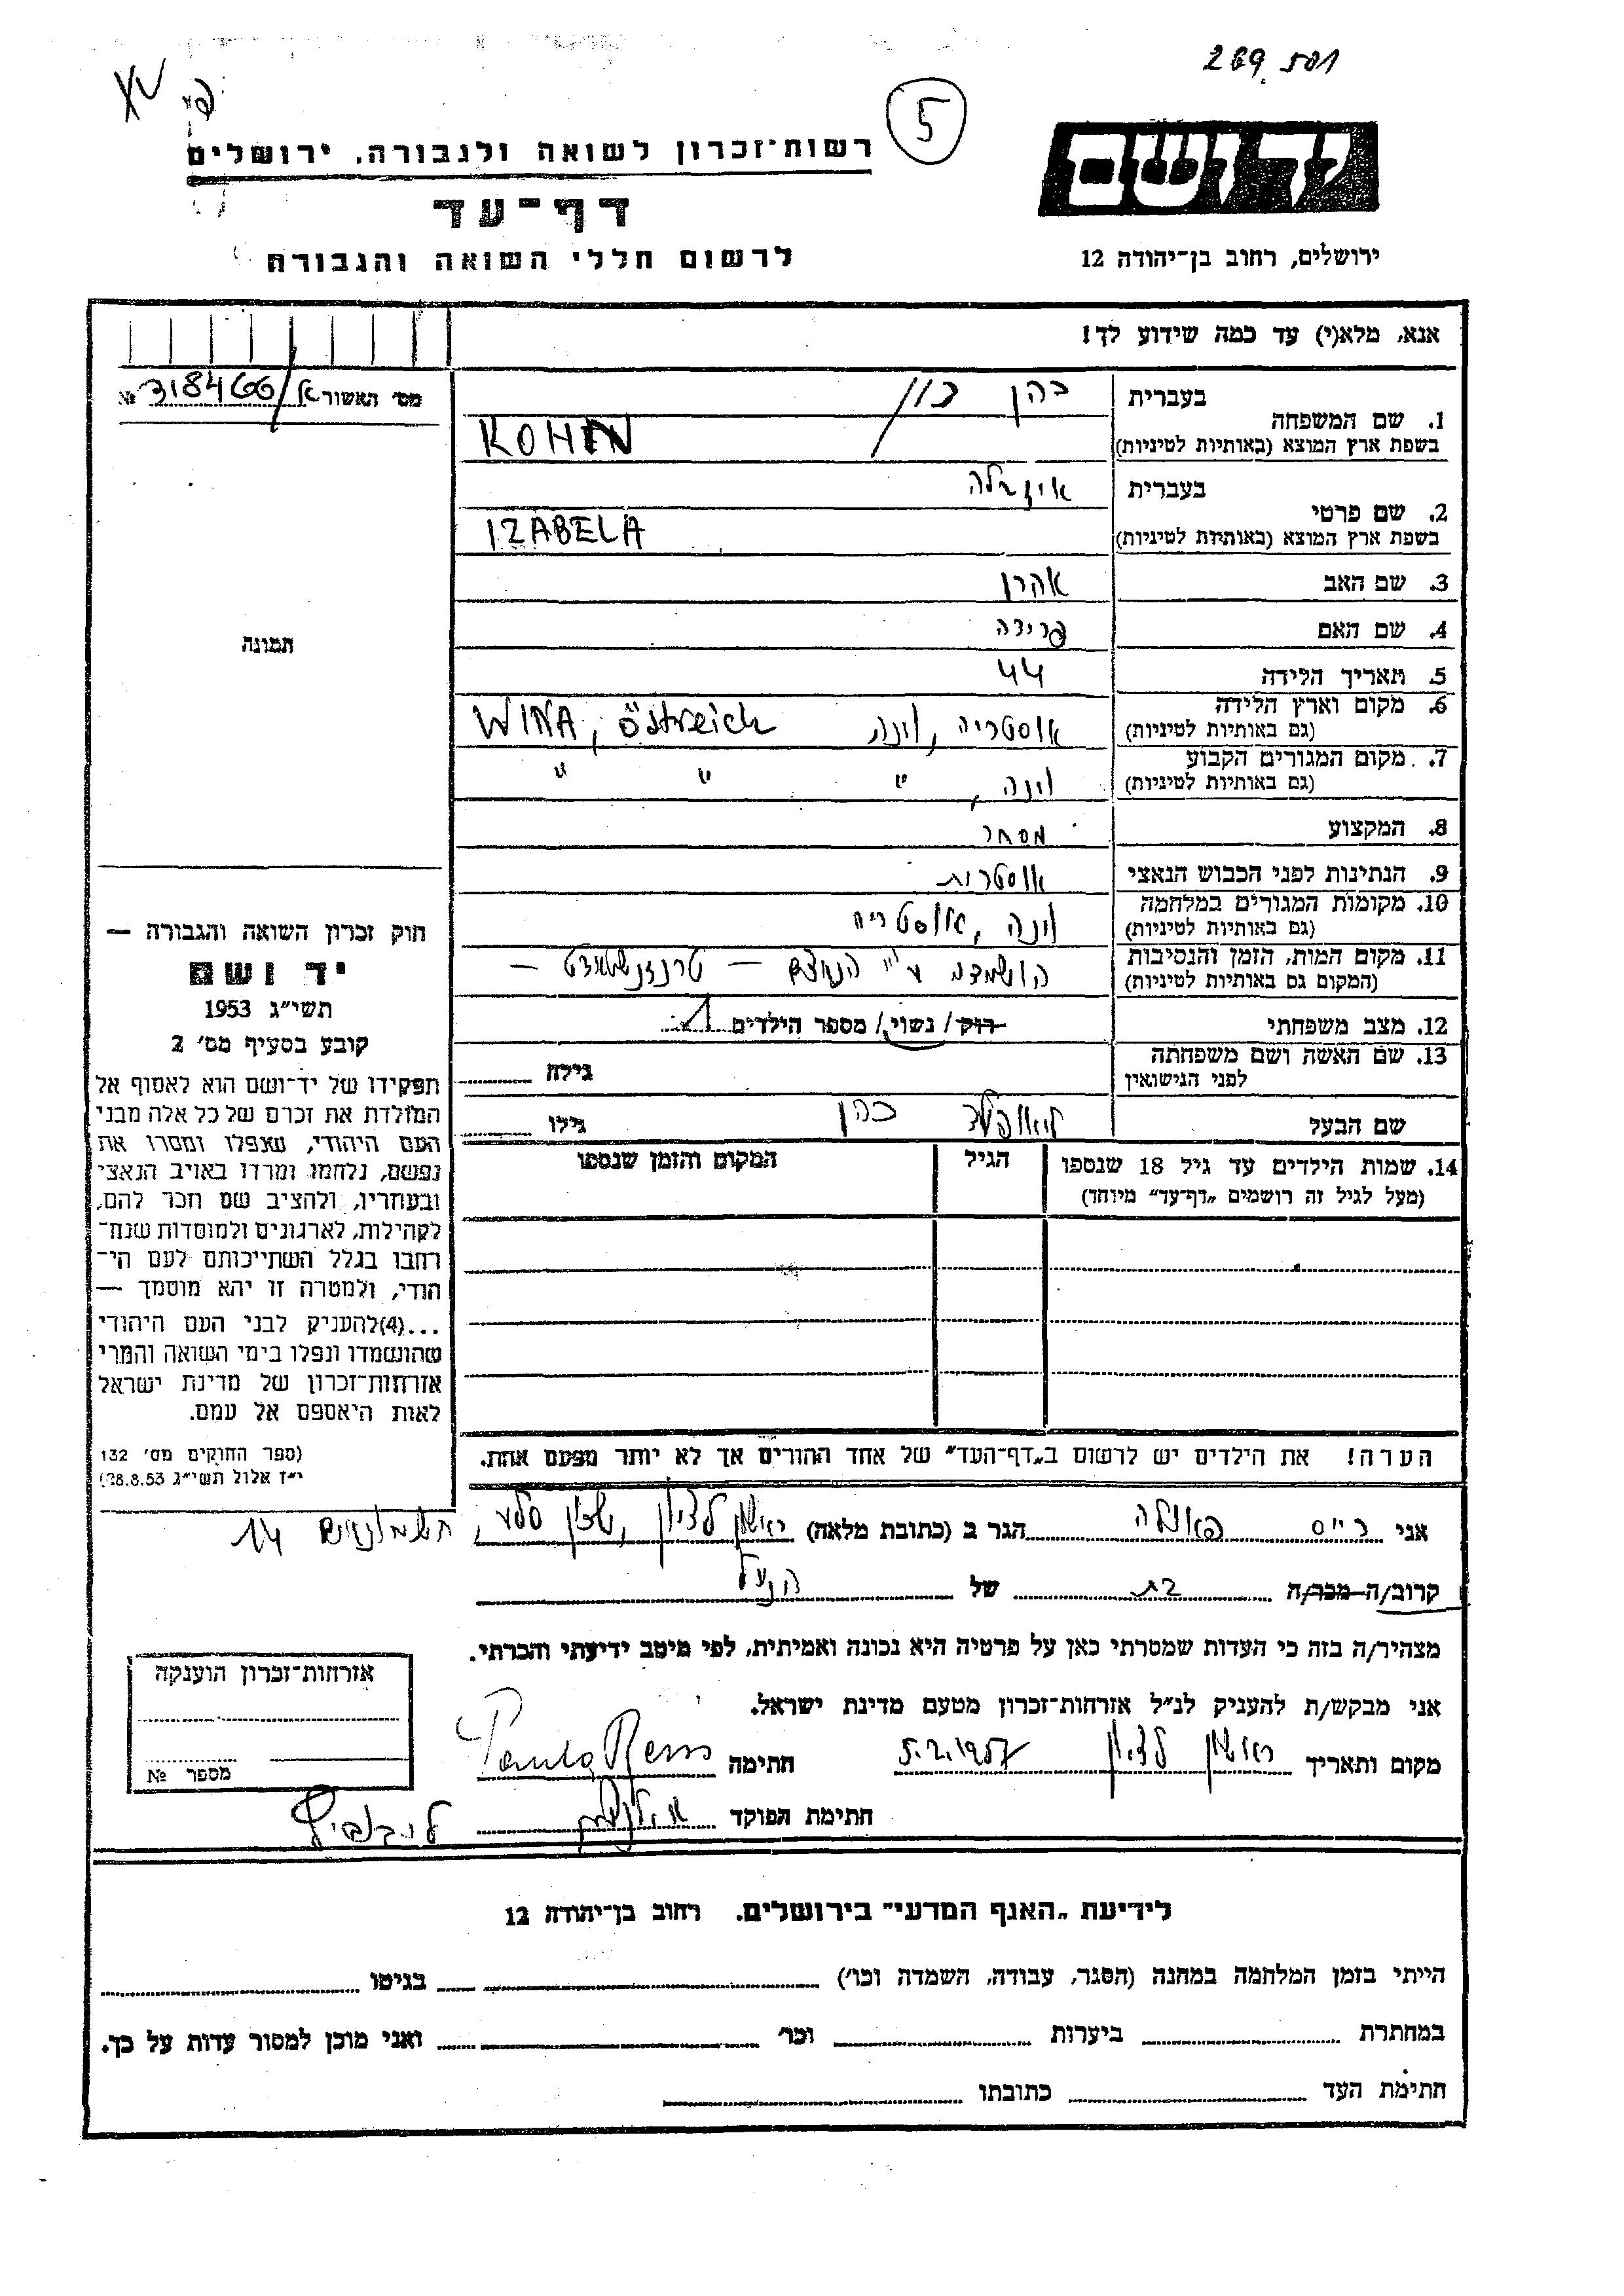 269.501
5
יד ושם
רשות-זכרון לשואה ולגבורה, ירושלים
דף-עד
לרשום חללי השואה והגבורה
ירושלים, רחוב בן-יהודה 12
אנא, מלא(י) עד כמה שידוע לך!
מס׳ האשור א/318466 №
1. שם המשפחה
בעברית כהן כון
בשפת ארץ המוצא (באותיות לטיניות) KOHN
2. שם פרטי
בעברית איזבלה
בשפת ארץ המוצא (באותיות לטיניות) IZABELA
3. שם האב אהרן
4. שם האם פרידה
תמונה
5. תאריך הלידה 44
6. מקום וארץ הלידה
(גם באותיות לטיניות) אוסטריה, וינה WINA, östreich
7. מקום המגורים הקבוע
(גם באותיות לטיניות) וינה, " " "
8. המקצוע מסחר
9. הנתינות לפני הכבוש הנאצי אוסטרית
10. מקומות המגורים במלחמה
(גם באותיות לטיניות) וינה, אוסטריה
11. מקום המות, הזמן והנסיבות
(המקום גם באותיות לטיניות) הושמדה ע"י הנאצים – טרנזנשטאדט –
12. מצב משפחתי רוק/ נשוי/ מספר הילדים 1
13. שם האשה ושם משפחתה
לפני הנישואין גילה
שם הבעל ליאופולד כהן גילו
14. שמות הילדים עד גיל 18 שנספו
(מעל לגיל זה רושמים „דף-עד״ מיוחד)
הגיל
המקום והזמן שנספו
חוק זכרון השואה והגבורה —
יד ושם
תשי״ג 1953
קובע בסעיף מס׳ 2
תפקידו של יד-ושם הוא לאסוף אל
המולדת את זכרם של כל אלה מבני
העם היהודי, שנפלו ומסרו את
נפשם, נלחמו ומרדו באויב הנאצי
ובעוזריו, ולהציב שם וזכר להם,
לקהילות, לארגונים ולמוסדות שנח־
רבו בגלל השתייכותם לעם הי־
הודי, ולמטרה זו יהא מוסמך —
...(4)להעניק לבני העם היהודי
שהושמדו ונפלו בימי השואה והמרי
אזרחות-זכרון של מדינת ישראל
לאות היאספם אל עמם.
(ספר החוקים מס׳ 132
י״ז אלול תשי״ג 28.8.53)
הערה! את הילדים יש לרשום ב„דף-העד״ של אחד ההורים אך לא יותר מפעם אחת.
אני רייס פאולה הגר ב (כתובת מלאה) ראשון לציון, שכון סלע, 14
קרוב/ה מכר/ה בת של הנ"ל
מצהיר/ה בזה כי העדות שמסרתי כאן על פרטיה היא נכונה ואמיתית, לפי מיטב ידיעתי והכרתי.
אני מבקש/ת להעניק לנ״ל אזרחות-זכרון מטעם מדינת ישראל.
מקום ותאריך ראשון לציון 5.2.1957 חתימה Paula Reiss
חתימת הפוקד
אזרחות-זכרון הוענקה
מספר №
לידיעת „האגף המדעי״ בירושלים. רחוב בן-יהודה 12
הייתי בזמן המלחמה במחנה (הסגר, עבודה, השמדה וכו׳) בגיטו
במחתרת ביערות וכו׳ ואני מוכן למסור עדות על כך.
חתימת העד כתובתו